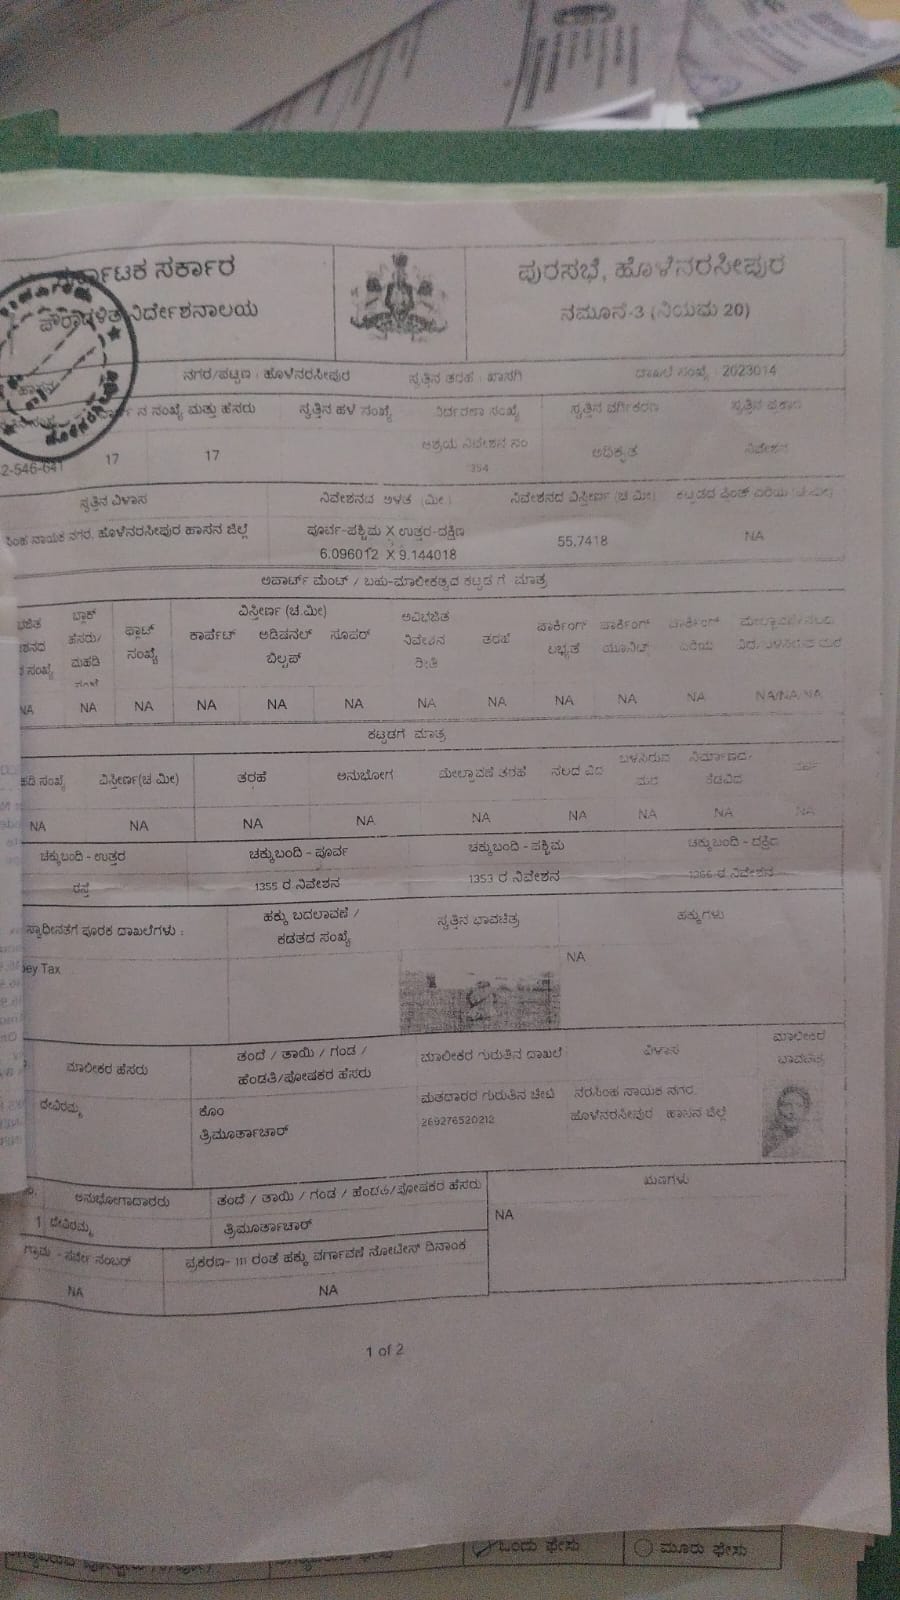 ಕರ್ನಾಟಕ ಸರ್ಕಾರ
ಪೌರಾಡಳಿತ ನಿರ್ದೇಶನಾಲಯ
ಪುರಸಭೆ, ಹೊಳೆನರಸೀಪುರ
ನಮೂನೆ-3 (ನಿಯಮ 20)
ನಗರ/ಪಟ್ಟಣ : ಹೊಳೆನರಸೀಪುರ ಸ್ವತ್ತಿನ ತರಹೆ : ಖಾಸಗಿ ದಾಖಲೆ ಸಂಖ್ಯೆ : 2023014
ನ ಸಂಖ್ಯೆ ಮತ್ತು ಹೆಸರು ಸ್ವತ್ತಿನ ಹಳೆ ಸಂಖ್ಯೆ ನಿರ್ಧರಣಾ ಸಂಖ್ಯೆ ಸ್ವತ್ತಿನ ವರ್ಗೀಕರಣ ಸ್ವತ್ತಿನ ಪ್ರಕಾರ
2-546-641 17 17 ಆಶ್ರಯ ನಿವೇಶನ ನಂ 354 ಅಧಿಕೃತ ನಿವೇಶನ
ಸ್ವತ್ತಿನ ವಿಳಾಸ ನಿವೇಶನದ ಅಳತೆ (ಮೀ.) ನಿವೇಶನದ ವಿಸ್ತೀರ್ಣ (ಚ ಮೀ) ಕಟ್ಟಡದ ಪ್ಲಿಂತ್ ಏರಿಯ (ಚ.ಮೀ)
ಸಿಂಹ ನಾಯಕ ನಗರ, ಹೊಳೆನರಸೀಪುರ ಹಾಸನ ಜಿಲ್ಲೆ ಪೂರ್ವ-ಪಶ್ಚಿಮ X ಉತ್ತರ-ದಕ್ಷಿಣ
6.096012 X 9.144018 55.7418 NA
ಅಪಾರ್ಟ್ ಮೆಂಟ್ / ಬಹು-ಮಾಲೀಕತ್ವದ ಕಟ್ಟಡ ಗೆ ಮಾತ್ರ
ಬ್ಲಾಕ್ ಹೆಸರು/ ಮಹಡಿ ಫ್ಲಾಟ್ ಸಂಖ್ಯೆ ವಿಸ್ತೀರ್ಣ (ಚ.ಮೀ) ಅವಿಭಜಿತ ನಿವೇಶನ ತರಹೆ ಪಾರ್ಕಿಂಗ್ ಲಭ್ಯತೆ ಪಾರ್ಕಿಂಗ್ ಯೂನಿಟ್ ಪಾರ್ಕಿಂಗ್ ಏರಿಯ
ಕಾರ್ಪೆಟ್ ಅಡಿಷನಲ್ ಬಿಲ್ಟಪ್ ಸೂಪರ್
NA NA NA NA NA NA NA NA NA NA NA NA/NA/NA
ಕಟ್ಟಡಗೆ ಮಾತ್ರ
ಸಂಖ್ಯೆ ವಿಸ್ತೀರ್ಣ(ಚ ಮೀ) ತರಹೆ ಅನುಭೋಗ ಮೇಲ್ಛಾವಣಿ ತರಹೆ ನೆಲದ ವಿಧ ಬಳಸಿರುವ ಮರ
NA NA NA NA NA NA NA NA NA
ಚಕ್ಕುಬಂದಿ - ಉತ್ತರ ಚಕ್ಕುಬಂದಿ - ಪೂರ್ವ ಚಕ್ಕುಬಂದಿ - ಪಶ್ಚಿಮ ಚಕ್ಕುಬಂದಿ - ದಕ್ಷಿಣ
ರಸ್ತೆ 1355 ರ ನಿವೇಶನ 1353 ರ ನಿವೇಶನ 1366 ರ ನಿವೇಶನ
ಸ್ವಾಧೀನತೆಗೆ ಪೂರಕ ದಾಖಲೆಗಳು : ಹಕ್ಕು ಬದಲಾವಣೆ / ಕಡತದ ಸಂಖ್ಯೆ ಸ್ವತ್ತಿನ ಭಾವಚಿತ್ರ ಹಕ್ಕುಗಳು
ey Tax NA
ಮಾಲೀಕರ ಹೆಸರು ತಂದೆ / ತಾಯಿ / ಗಂಡ / ಹೆಂಡತಿ/ಪೋಷಕರ ಹೆಸರು ಮಾಲೀಕರ ಗುರುತಿನ ದಾಖಲೆ ವಿಳಾಸ ಮಾಲೀಕರ ಭಾವಚಿತ್ರ
ದೇವಿರಮ್ಮ ಕೊಂ ತ್ರಿಮೂರ್ತಾಚಾರ್ ಮತದಾರರ ಗುರುತಿನ ಚೀಟಿ 269276520212 ನರಸಿಂಹ ನಾಯಕ ನಗರ ಹೊಳೆನರಸೀಪುರ ಹಾಸನ ಜಿಲ್ಲೆ
ಅನುಭೋಗದಾರರು ತಂದೆ / ತಾಯಿ / ಗಂಡ / ಹೆಂಡತಿ/ಪೋಷಕರ ಹೆಸರು ಋಣಗಳು
1 ದೇವಿರಮ್ಮ ತ್ರಿಮೂರ್ತಾಚಾರ್ NA
ಗ್ರಾಮ - ಸರ್ವೆ ನಂಬರ್ ಪ್ರಕರಣ- 111 ರಂತೆ ಹಕ್ಕು ವರ್ಗಾವಣೆ ನೋಟೀಸ್ ದಿನಾಂಕ
NA NA
1 of 2
ಒಂದು ಫೇಸು ಮೂರು ಫೇಸು